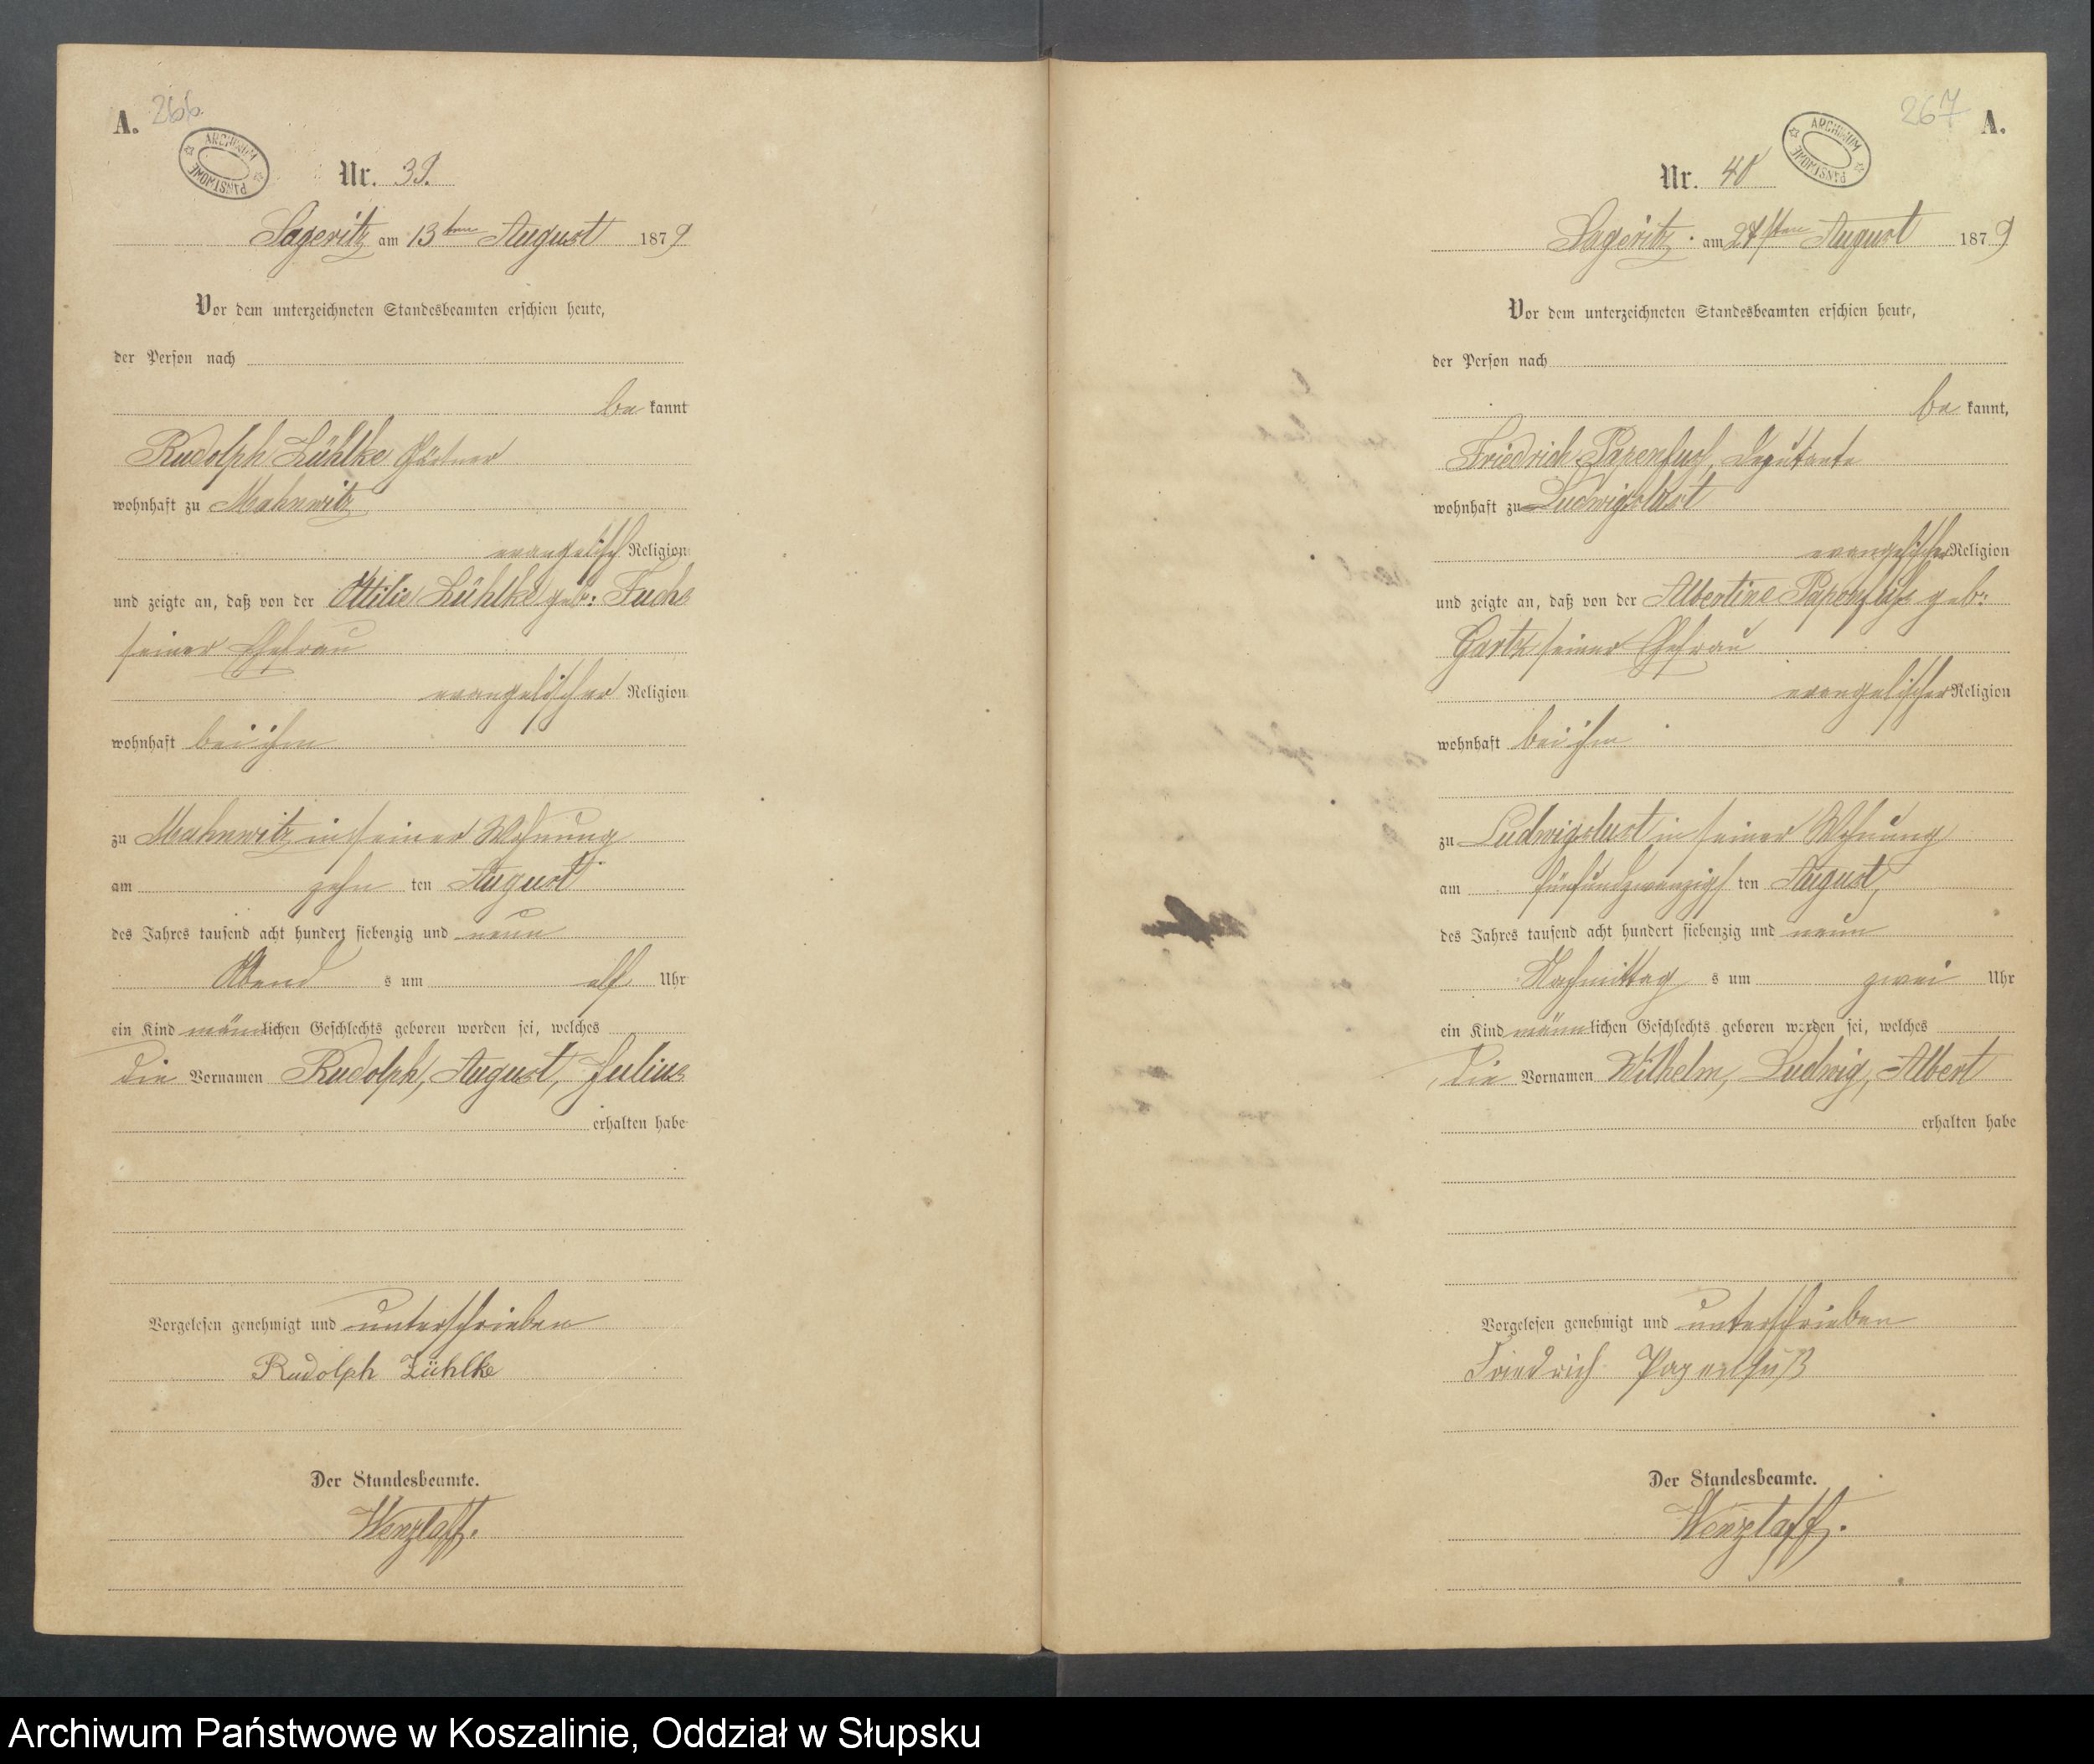 A. 266.
ARCHIWUM PAŃSTWOWE
Nr. 39.
Sageritz am 13ten August 1879
Vor dem unterzeichneten Standesbeamten erschien heute,
der Person nach
be kannt
Rudolph Zühlke Gärtner
wohnhaft zu Mahnwitz
evangelisch Religion
und zeigte an, daß von der Ottilie Zühlke geb: Fuchs
seiner Ehefrau
evangelischer Religion
wohnhaft bei ihm
zu Mahnwitz in seiner Wohnung
am zehn ten August
des Jahres tausend acht hundert siebenzig und neun
Abend s um elf Uhr
ein Kind männlichen Geschlechts geboren worden sei, welches
die Vornamen Rudolph, August, Julius
erhalten habe
Vorgelesen genehmigt und unterschrieben
Rudolph Zühlke
Der Standesbeamte.
Wenzlaff.
267 A.
ARCHIWUM PAŃSTWOWE
Nr. 40
Sageritz am 27sten August 1879
Vor dem unterzeichneten Standesbeamten erschien heute,
der Person nach
be kannt,
Friedrich Papenfuß, Deputante
wohnhaft zu Ludwigslust
evangelischer Religion
und zeigte an, daß von der Albertine Papenfuß geb:
Gartz seiner Ehefrau
evangelischer Religion
wohnhaft bei ihm
zu Ludwigslust in seiner Wohnung
am fünfundzwanzigs ten August,
des Jahres tausend acht hundert siebenzig und neun
Nachmittag s um zwei Uhr
ein Kind männlichen Geschlechts geboren worden sei, welches
die Vornamen Wilhelm, Ludwig, Albert
erhalten habe
Vorgelesen genehmigt und unterschrieben
Friedrich Papenfuß
Der Standesbeamte.
Wenzlaff.
Archiwum Państwowe w Koszalinie, Oddział w Słupsku